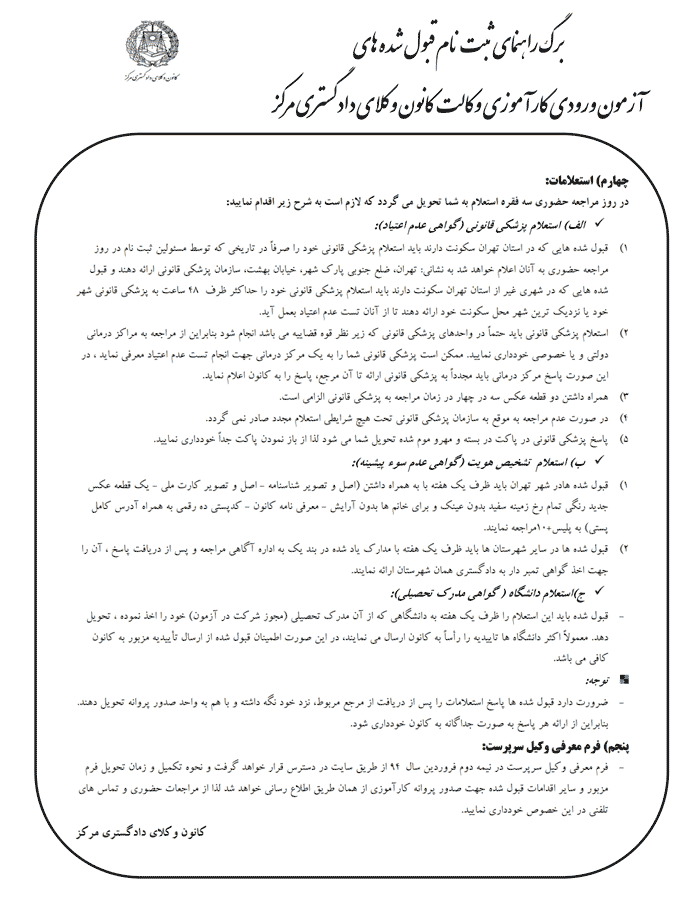 برگ راهنمای ثبت نام قبول شده های
آزمون ورودی کارآموزی وکالت کانون وکلای دادگستری مرکز
کانون وکلای دادگستری مرکز
چهارم) استعلامات:
در روز مراجعه حضوری سه فقره استعلام به شما تحویل می گردد که لازم است به شرح زیر اقدام نمایید:
✓ الف) استعلام پزشکی قانونی (گواهی عدم اعتیاد):
۱) قبول شده هایی که در استان تهران سکونت دارند باید استعلام پزشکی قانونی خود را صرفاً در تاریخی که توسط مسئولین ثبت نام در روز
مراجعه حضوری به آنان اعلام خواهد شد به نشانی: تهران، ضلع جنوبی پارک شهر، خیابان بهشت، سازمان پزشکی قانونی ارائه دهند و قبول
شده هایی که در شهری غیر از استان تهران سکونت دارند باید استعلام پزشکی قانونی خود را حداکثر ظرف ۴۸ ساعت به پزشکی قانونی شهر
خود یا نزدیک ترین شهر محل سکونت خود ارائه دهند تا از آنان تست عدم اعتیاد بعمل آید.
۲) استعلام پزشکی قانونی باید حتماً در واحدهای پزشکی قانونی که زیر نظر قوه قضاییه می باشد انجام شود بنابراین از مراجعه به مراکز درمانی
دولتی و یا خصوصی خودداری نمایید. ممکن است پزشکی قانونی شما را به یک مرکز درمانی جهت انجام تست عدم اعتیاد معرفی نماید ، در
این صورت پاسخ مرکز درمانی باید مجدداً به پزشکی قانونی ارائه تا آن مرجع، پاسخ را به کانون اعلام نماید.
۳) همراه داشتن دو قطعه عکس سه در چهار در زمان مراجعه به پزشکی قانونی الزامی است.
۴) در صورت عدم مراجعه به موقع به سازمان پزشکی قانونی تحت هیچ شرایطی استعلام مجدد صادر نمی گردد.
۵) پاسخ پزشکی قانونی در پاکت در بسته و مهرو موم شده تحویل شما می شود لذا از باز نمودن پاکت جداً خودداری نمایید.
✓ ب) استعلام تشخیص هویت (گواهی عدم سوء پیشینه):
۱) قبول شده هادر شهر تهران باید ظرف یک هفته با به همراه داشتن (اصل و تصویر شناسنامه - اصل و تصویر کارت ملی - یک قطعه عکس
جدید رنگی تمام رخ زمینه سفید بدون عینک و برای خانم ها بدون آرایش - معرفی نامه کانون - کدپستی ده رقمی به همراه آدرس کامل
پستی) به پلیس+۱۰مراجعه نمایند.
۲) قبول شده ها در سایر شهرستان ها باید ظرف یک هفته با مدارک یاد شده در بند یک به اداره آگاهی مراجعه و پس از دریافت پاسخ ، آن را
جهت اخذ گواهی تمبر دار به دادگستری همان شهرستان ارائه نمایند.
✓ ج)استعلام دانشگاه ( گواهی مدرک تحصیلی):
- قبول شده باید این استعلام را ظرف یک هفته به دانشگاهی که از آن مدرک تحصیلی (مجوز شرکت در آزمون) خود را اخذ نموده ، تحویل
دهد. معمولاً اکثر دانشگاه ها تاییدیه را رأساً به کانون ارسال می نمایند، در این صورت اطمینان قبول شده از ارسال تأییدیه مزبور به کانون
کافی می باشد.
توجه:
- ضرورت دارد قبول شده ها پاسخ استعلامات را پس از دریافت از مرجع مربوط، نزد خود نگه داشته و با هم به واحد صدور پروانه تحویل دهند.
بنابراین از ارائه هر پاسخ به صورت جداگانه به کانون خودداری شود.
پنجم) فرم معرفی وکیل سرپرست:
- فرم معرفی وکیل سرپرست در نیمه دوم فروردین سال ۹۴ از طریق سایت در دسترس قرار خواهد گرفت و نحوه تکمیل و زمان تحویل فرم
مزبور و سایر اقدامات قبول شده جهت صدور پروانه کارآموزی از همان طریق اطلاع رسانی خواهد شد لذا از مراجعات حضوری و تماس های
تلفنی در این خصوص خودداری نمایید.
کانون وکلای دادگستری مرکز